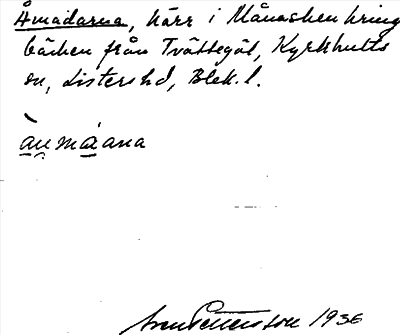 Åmadarna, kärr i Månasken kring
bäcken från Tvättegöl, Kyrkhults
sn, Listers hd, Blek. l.
àu máana
Sven Pettersson 1936